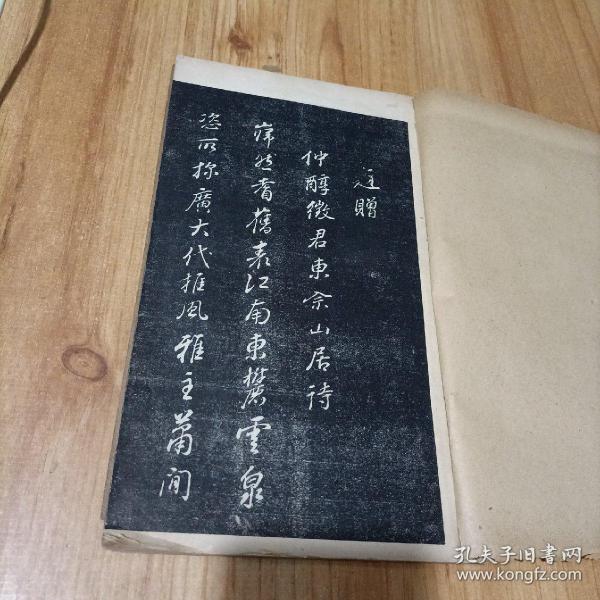 題贈
仲醇徵君東佘山居詩
巋然耆舊表江南東麓雲泉
恣所探廣大代推風雅主蕭閒
孔夫子旧书网
www.kongfz.com